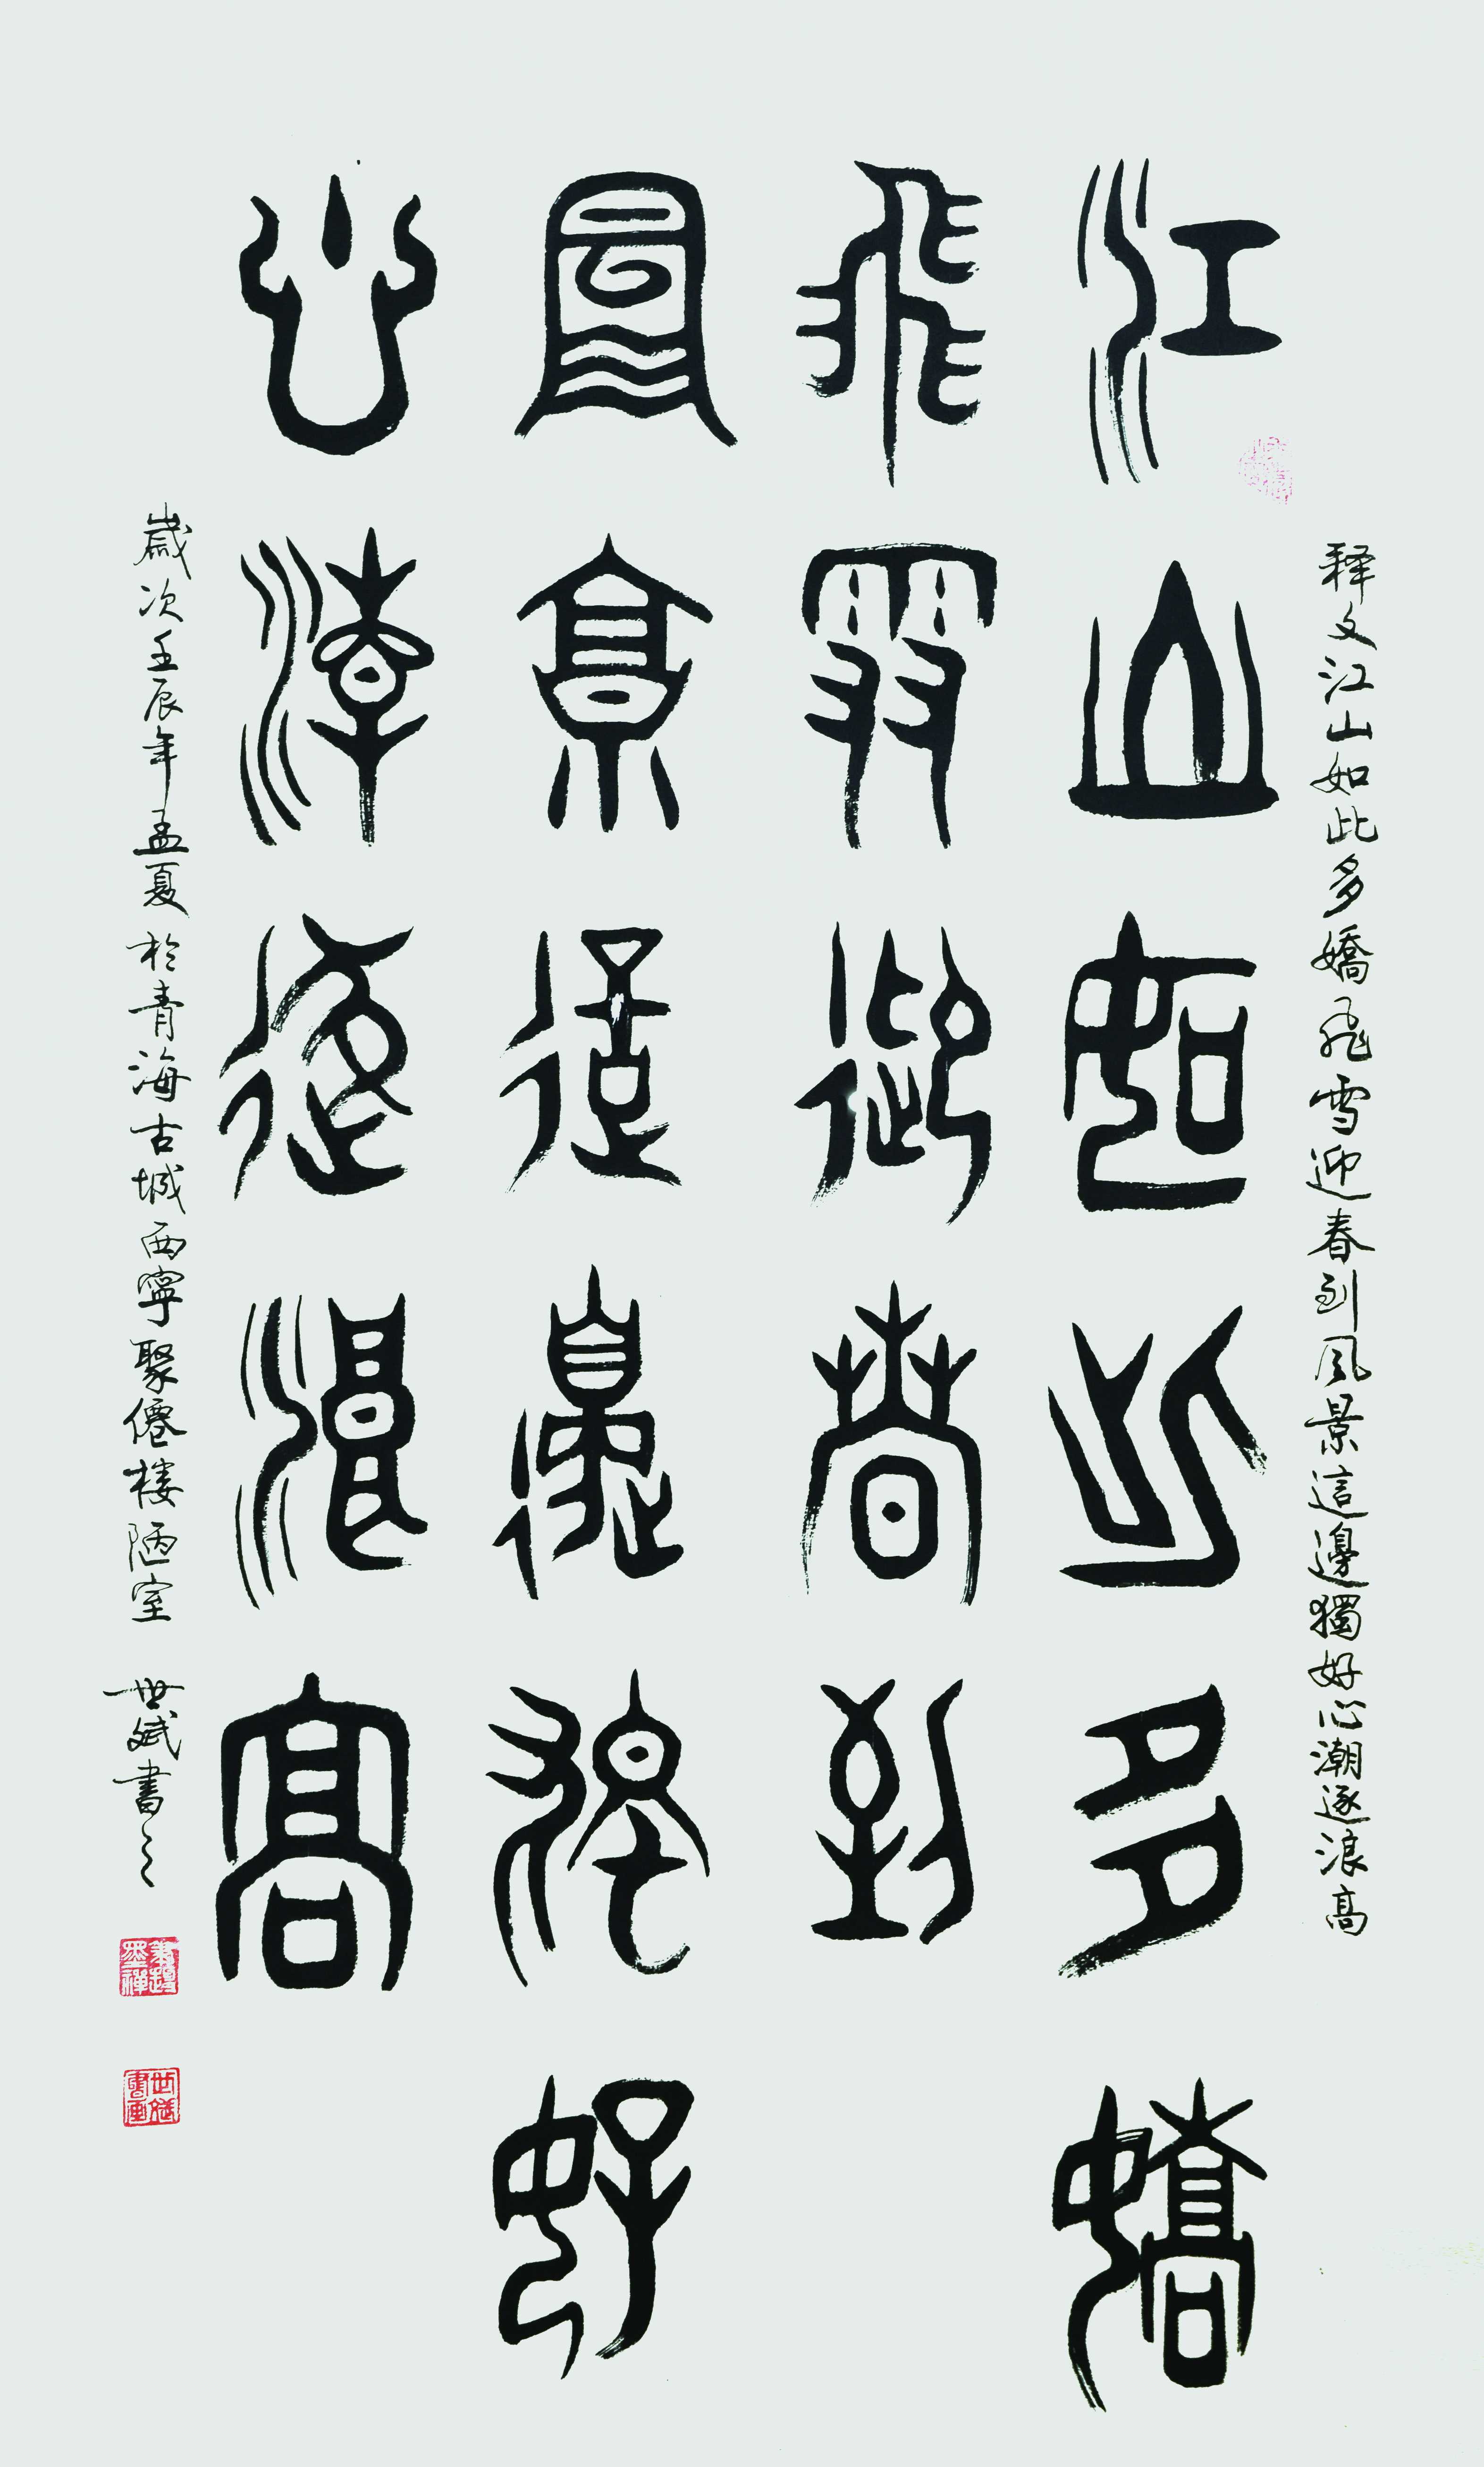 释文江山如此多嬌飛雪迎春到風景這邊獨好心潮逐浪高
江山如此多嬌
飛雪迎春到
風景這邊獨好
心潮逐浪高
歲次壬辰年孟夏於青海古城西寧聚僊樓陋室 世斌書之
世斌書画